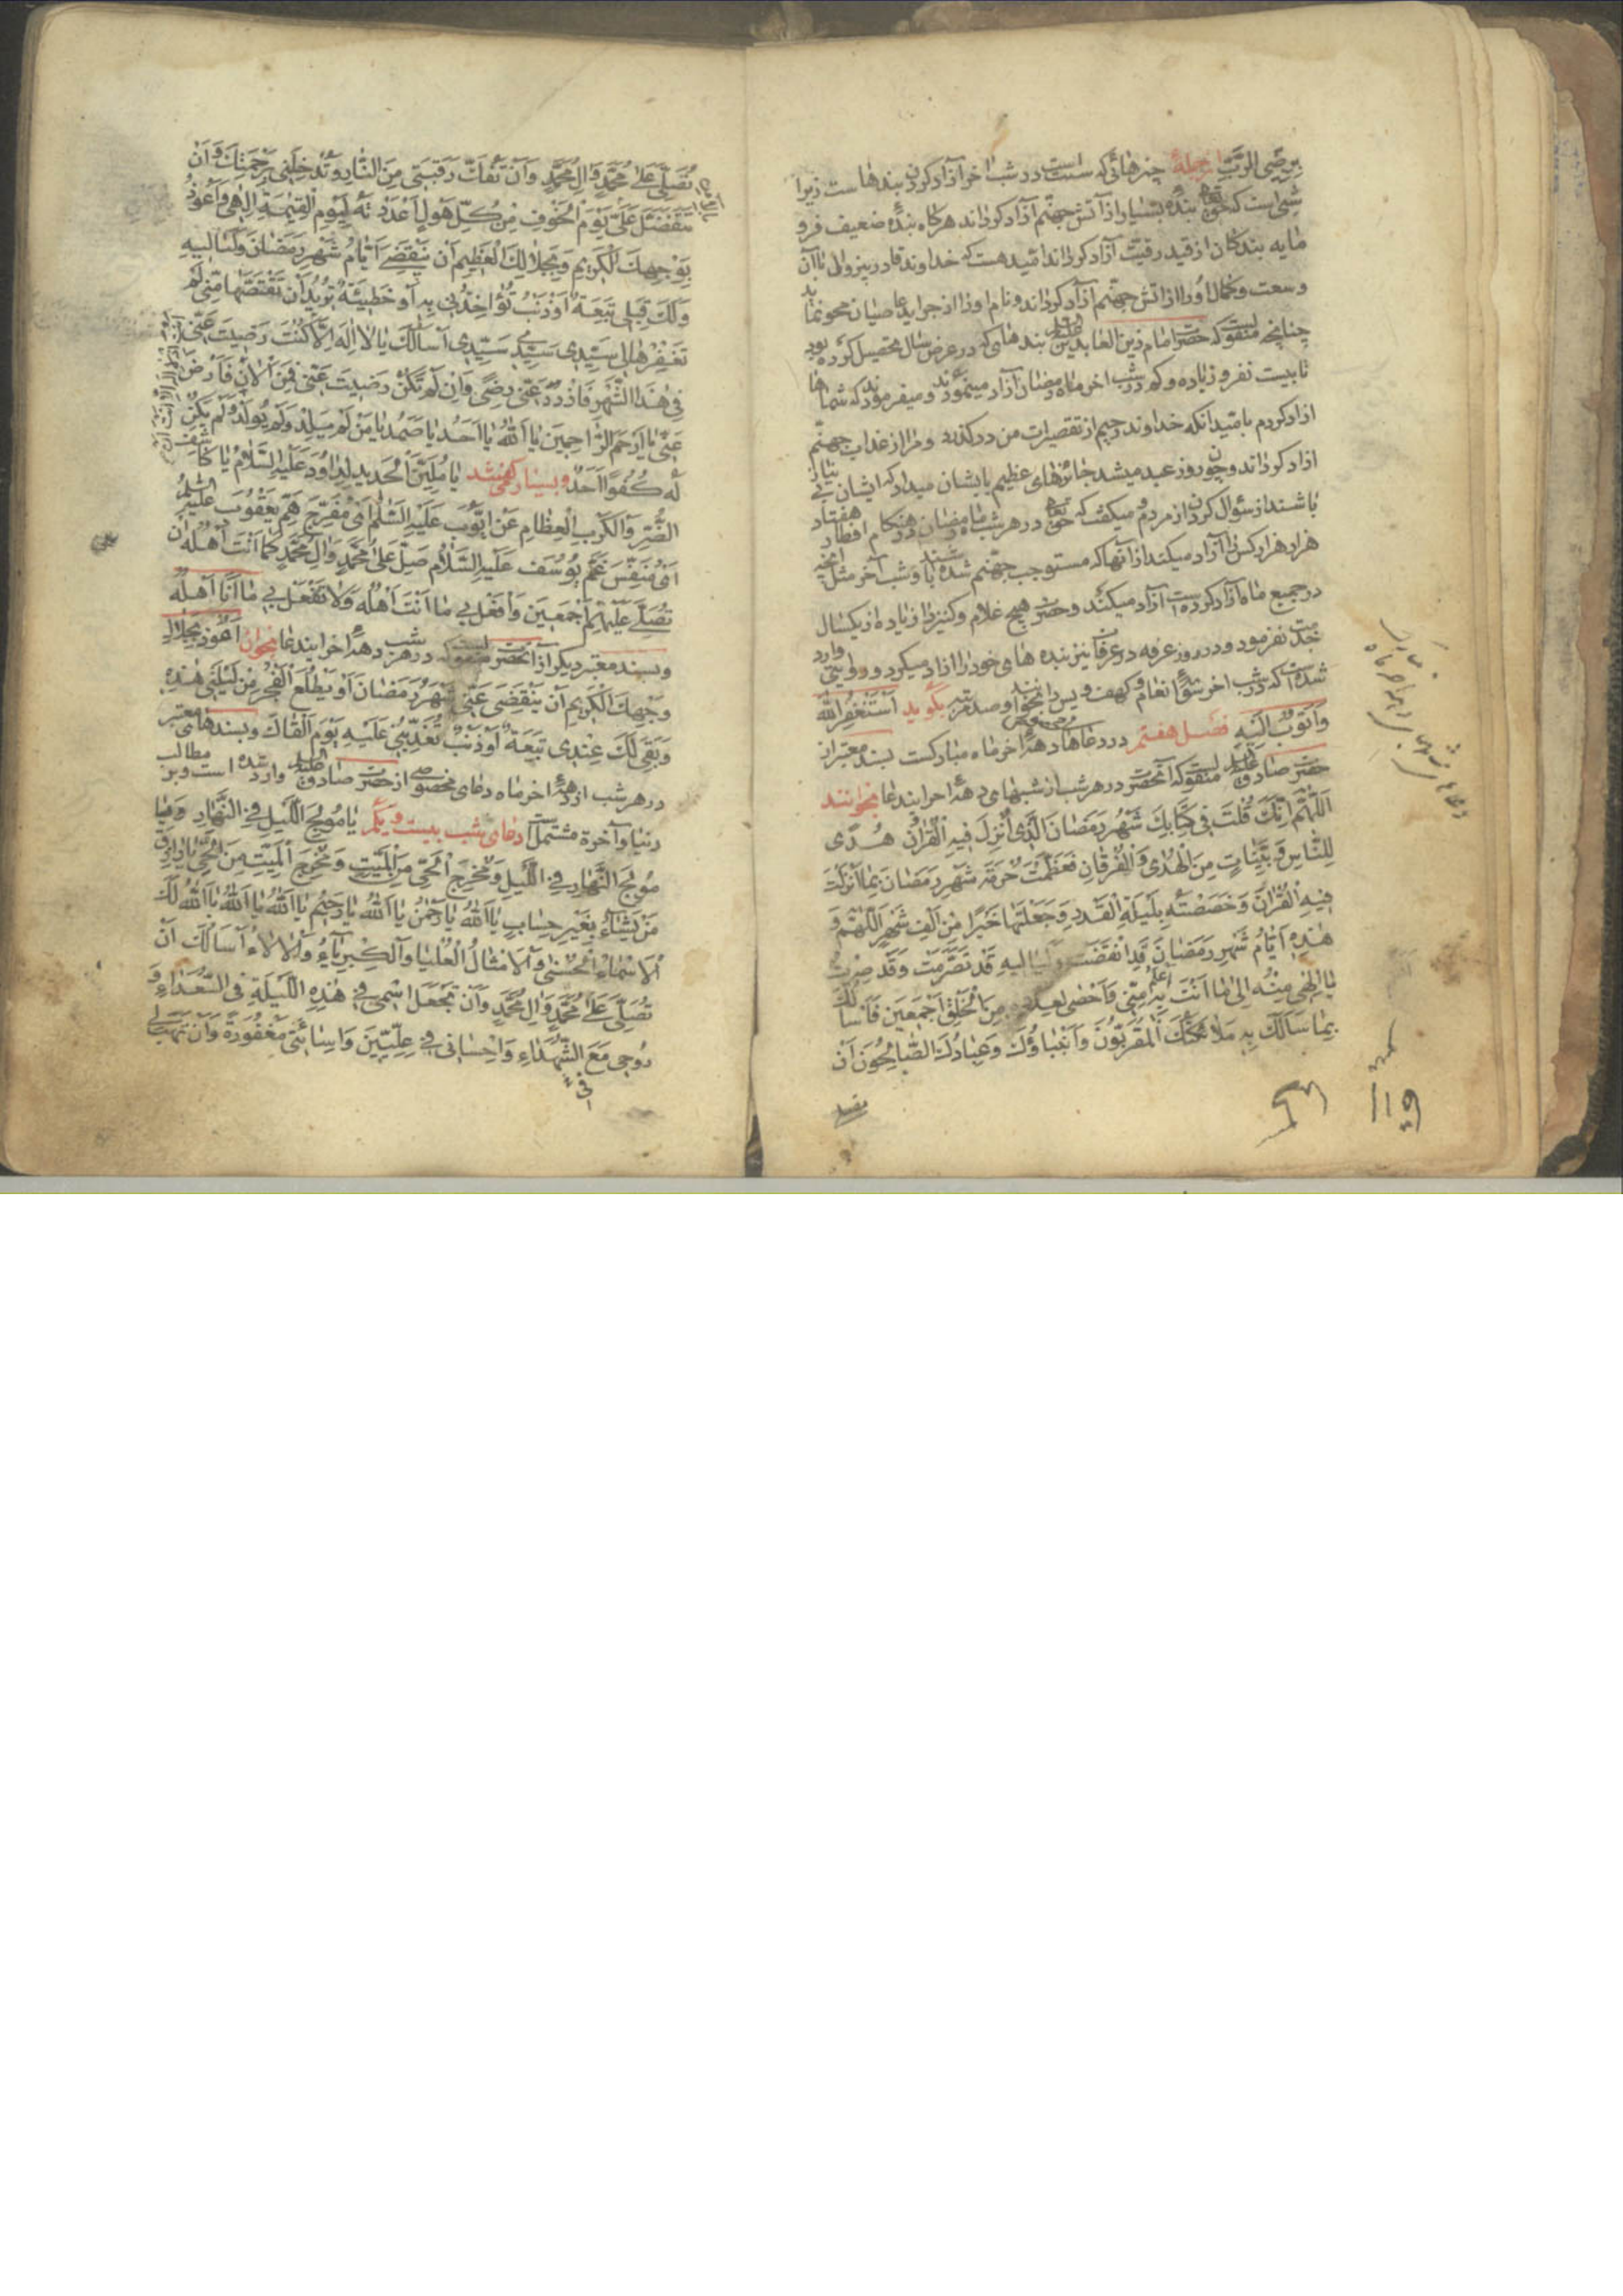 برضی الرب ازجمله چیزهائی که سنت است در شب اخر آزاد کردن بندها ست زیرا
شبی است که حق تعالی بنده بسیار از آتش جهنم آزاد کرداند هرکاه بنده ضعیف فرو
مایه بندکان از قید رقیت آزاد کرداند امید هست که خداوند قادر بیزوال باآن
وسعت و کمال او را از اتش جهنم آزاد کرداند و نام او را از جراید عاصیان محو نماید
چنانچه منقولست که حضرت امام زین العابدین علیه السلام بندهای که در عرض سال تحصیل کرده بود
تا بیست نفر و زیاده و کم در شب اخر ماه رمضان آزاد مینمودند و میفرمودند که شماها را
ازاد کردم بامید انکه خداوند رحیم از تقصیرات من درکذرد و مرا از عذاب جهنم
ازاد کرداند و چون روز عید میشد جائزهای عظیم بایشان میداد که ایشان بی نیاز
باشند از سؤال کردن از مردم و میکفت که حق تعالی در هر شب ماه رمضان در هنکام افطار هفتاد
هزار هزار کس را آزاد میکند از آنها که مستوجب جهنم شده باشند و شب آخر مثل آنچه
در جمیع ماه آزاد کرده است آزاد میکند و حضرت هیچ غلام و کنیز را زیاده از یکسال
خدمت نفرمود و در روز عرفه در عرفات نیز بنده های خود را ازاد میکرد و روایتی وارد
شده است که در شب اخر سوره انعام و کهف و یس را بخوانند و صد مرتبه بکوید استغفر الله
و اتوب الیه فصل هفتم در دعاهای مخصوص دهه اخر ماه مبارکست بسند معتبر از
حضرت صادق علیه السلام منقولست که آنحضرت در هر شب از شبهای دهه اخر ایندعا بخوانند
اللهم انک قلت فی کتابک شهر رمضان الذی انزل فیه القران هدی
للناس و بینات من الهدی و الفرقان فعظمت حرمة شهر رمضان بما انزلت
فیه القران و خصصته بلیلة القدر و جعلتها خیرا من الف شهر اللهم و
هذه ایام شهر رمضان قد انقضت و لیالیه قد تصرمت و قد صرت
یا الهی منه الی ما انت اعلم به منی و احصی لعدده من الخلق اجمعین فاسألک
بما سالک به ملائکتک المقربون و انبیاؤک و عبادک الصالحون ان
تصلی علی محمد و ال محمد و ان تفک رقبتی من النار و تدخلنی برحمتک و ان
تتفضل علی یوم الخوف من کل هول اعددته لیوم القیمة الهی و اعوذ
بوجهک الکریم و بجلالک العظیم ان ینقضی ایام شهر رمضان و لیالیه
و لک قبلی تبعة او ذنب تؤاخذنی به او خطیئة ترید ان تقتصها منی لم
تغفرها لی سیدی سیدی سیدی اسألک یا لا اله الا انت
ان کنت رضیت عنی
فی هذا الشهر فازدد عنی رضی و ان لم تکن رضیت عنی فمن الان فارض
عنی یا ارحم الراحمین یا الله یا احد یا صمد یا من لم یلد و لم یولد و لم یکن
له کفوا احد و بسیار کفته شد یا ملین الحدید لداود علیه السلام یا کاشف
الضر و الکرب العظام عن ایوب علیه السلم ای مفرج هم یعقوب علیه السلم
ای منفس غم یوسف علیه السلام صل علی محمد و ال محمد کما انت اهله ان
تصلی علیهم اجمعین و افعل بی ما انت اهله و لا تفعل بی ما انا اهله
و بسند معتبر دیکر از آنحضرت منقولست که در هر شب دهه اخر ایندعا بخوان اعوذ بجلال
وجهک الکریم ان ینقضی عنی شهر رمضان او یطلع الفجر من لیلتی هذه
و بقی لک عندی تبعة او ذنب تعذبنی علیه یوم القاک و بسندهای معتبر
در هر شب از دهه اخر ماه دعای مخصوصی از حضرت صادق علیه السلم وارد شده است و بر مطالب
دنیا و آخرة مشتمل است دعای شب بیست و یکم یا مولج اللیل فی النهار و یا
مولج النهار فی اللیل و مخرج الحی من المیت و مخرج المیت من الحی یا رازق
من یشاء بغیر حساب یا الله یا رحمن یا الله یا رحیم یا الله یا الله یا الله لک
الاسماء الحسنی و الامثال العلیا و الکبریاء و الالاء اسالک ان
تصلی علی محمد و ال محمد و ان تجعل اسمی فی هذه اللیلة فی السعداء و
روحی مع الشهداء و احسانی فی علیین و اسائتی مغفورة و ان تهب لی